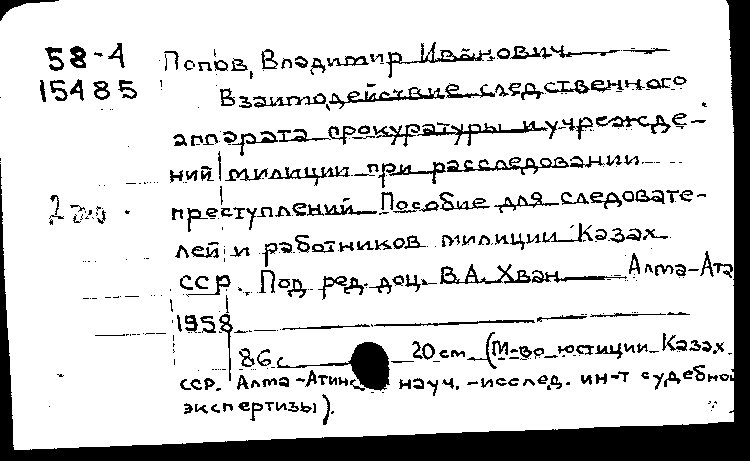 58-4 Попов, Владимир Иванович.
15485 Взаимодействие следственного
аппарата прокуратуры и учрежде-
ний милиции при расследовании
преступлений. Пособие для следовате-
лей и работников милиции Казах.
ССР. Под ред. доц. В.А. Хван. Алма-Ата
1958
86с. 20 см (М-во юстиции Казах.
ССР. Алма-Атинск науч.-исслед. ин-т судебной
экспертизы).